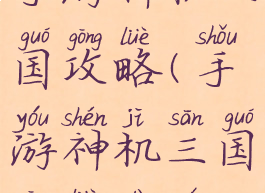 guó gōng lüè shǒu
国攻略(手
yóu shén jī sān guó
游神机三国